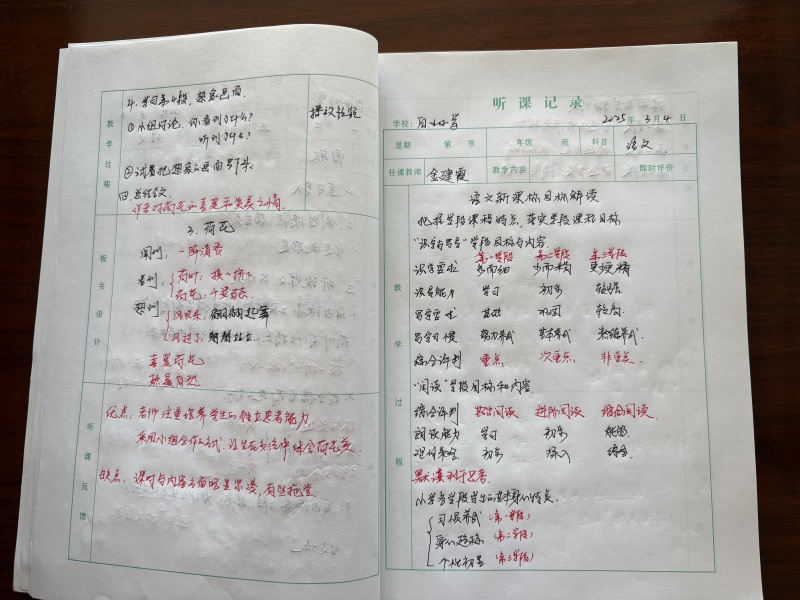 教学过程
4. 学习第4段，想象画面.
①小组讨论. 你看到了什么?
听到了什么?
②试着把想象的画面写下来.
四. 总结全文.
作者对荷花的喜爱和赞美之情.
板书设计
3. 荷花
闻到: 一阵清香
看到: 荷叶: 挨挨挤挤
荷花: 千姿百态
想到: 翩翩起舞
喜爱荷花
热爱自然
听课反馈
优点: 老师注重培养学生的独立思考能力.
采用小组合作的方式, 让生在交流中体会荷花美.
缺点: 课时与内容方面略显紧凑, 有些拖堂.
听课记录
学校: 2025年3月4日
星期 第 节 年级 班 科目 语文
任课教师 金建霞 教学内容 即时评价
教学过程
语文新课标目标解读
把握学段课程特点, 落实学段课程目标.
"识字与写字"学段目标与内容.
第一学段 第二学段 第三学段
识字要求 多而细 少而精 更梗精
识字能力 学习 初步 较强
写字要求 基础 巩固 较高
写字习惯 努力养成 基本养成
综合评判 重点 次重点 非重点
"阅读"学段目标和内容.
综合评判 进阶阅读 综合阅读
朗读能力 学习 初步 能够
默读利于思考
小学各学段突出的基本身心特点.
习惯养成 (第一学段)
(第二学段)
个性初显 (第三学段)